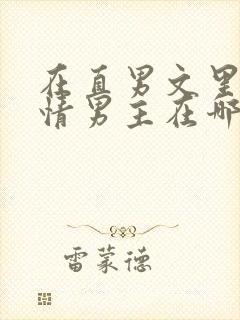 在直男文里
情男主在哪
雷蒙德